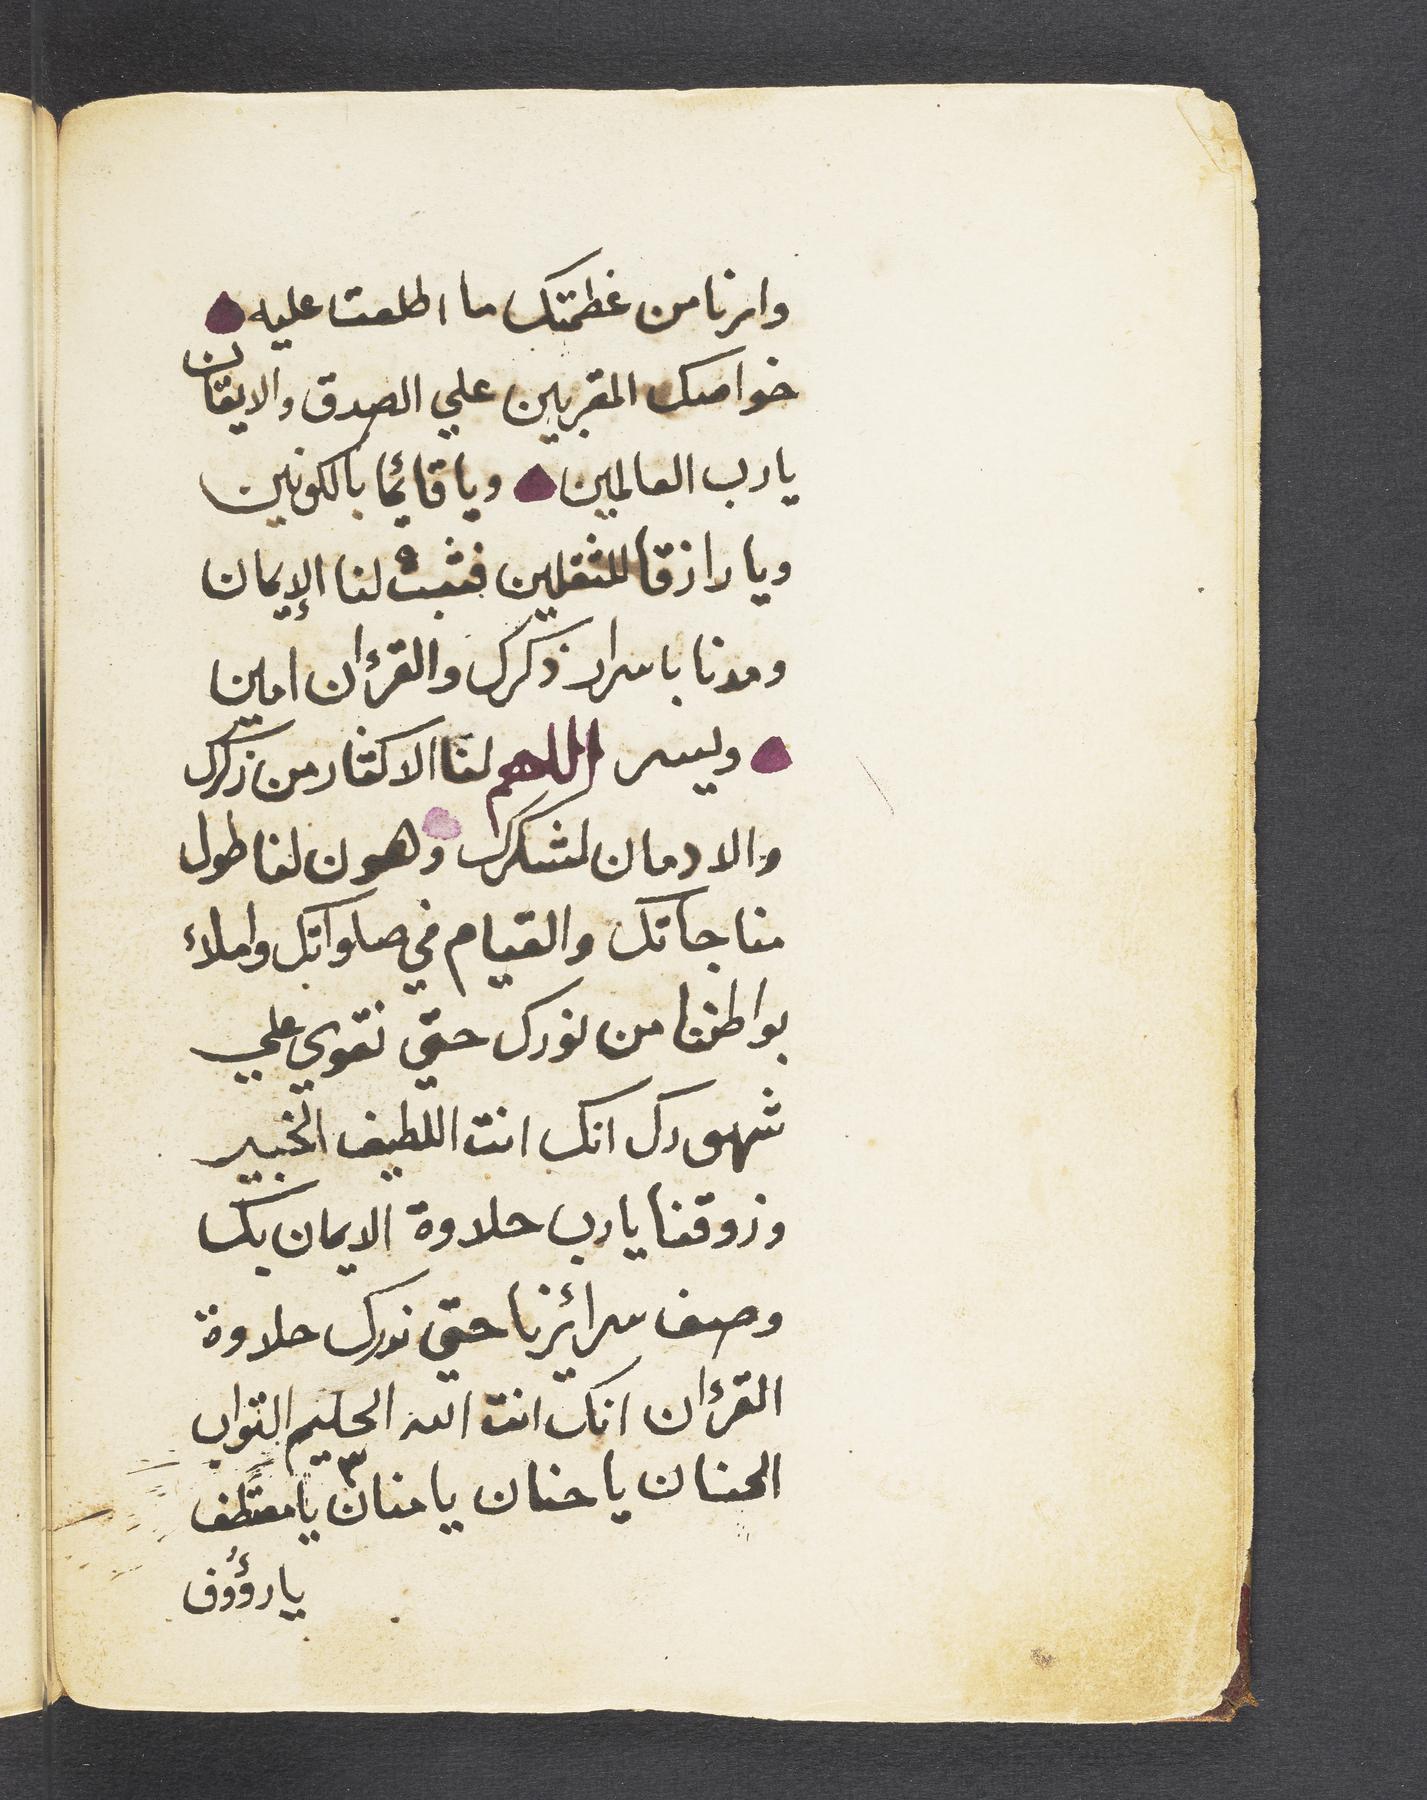 وارنا من غطمتك ما اطلعت عليه
خواصك المقربين علي الصدق والايقان
يارب العالمين ويا قائما بالكونين
ويا رازقا للثقلين فثبت لنا الإيمان
ومدنا باسرار ذكرك والقرءان امين
ويسر اللهم لنا الاكثار من زكرك
والادمان لشكرك وهون لنا طول
مناجاتك والقيام في صلواتك واملاء
بواطننا من نورك حتي نقوي علي
شهودك انك انت اللطيف الخبير
وزوقنا يارب حلاوة الايمان بك
وصف سرائرنا حتي ندرك حلاوة
القرءان انك انت الله الحليم التواب
الحنان يا حنان يا منان ٣ يا معتطف
يا رؤوف